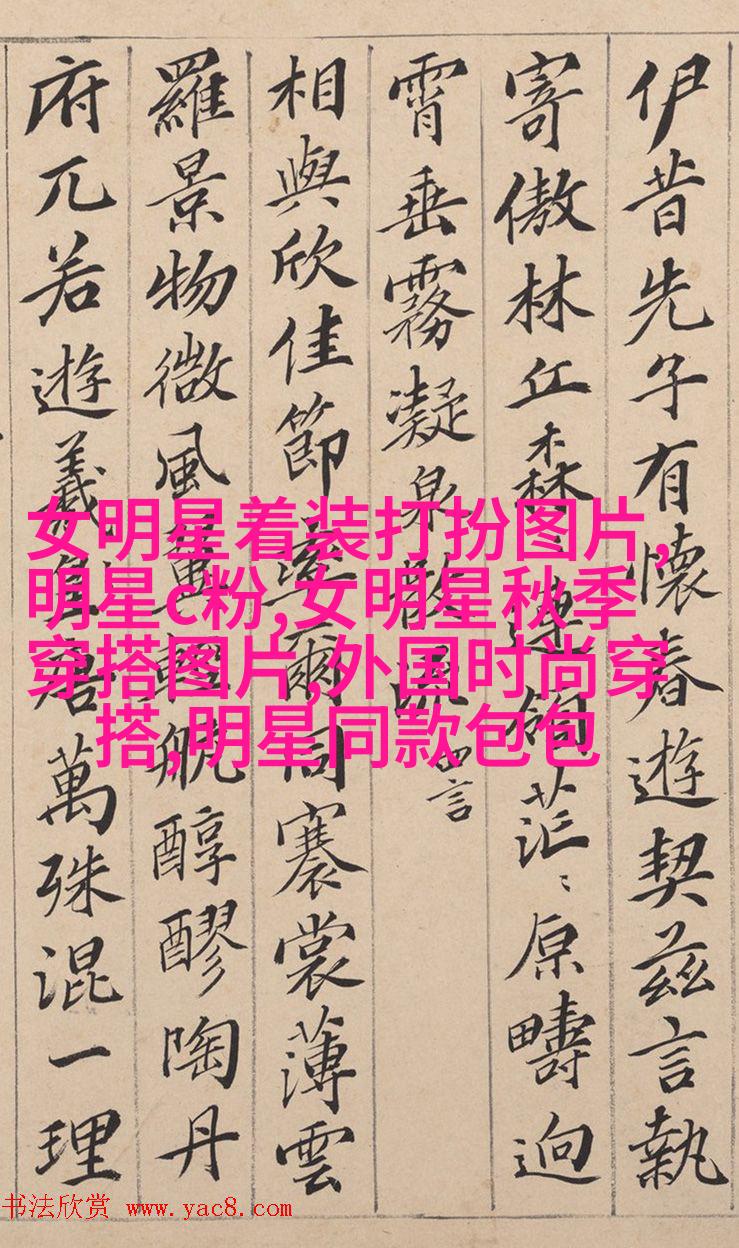 伊昔先子有懷春遊契茲言執
寄傲林丘森〻連領茫〻原疇迥
霄垂霧凝泉散流 四言
相與欣佳節率爾同褰裳薄雲
羅景物微風翼輕航醇醪陶丹
府兀若遊羲唐萬殊混一理
女明星着装打扮图片,
明星c粉,女明星秋季
穿搭图片,外国时尚穿
搭,明星同款包包
书法欣赏 www.yac8.com